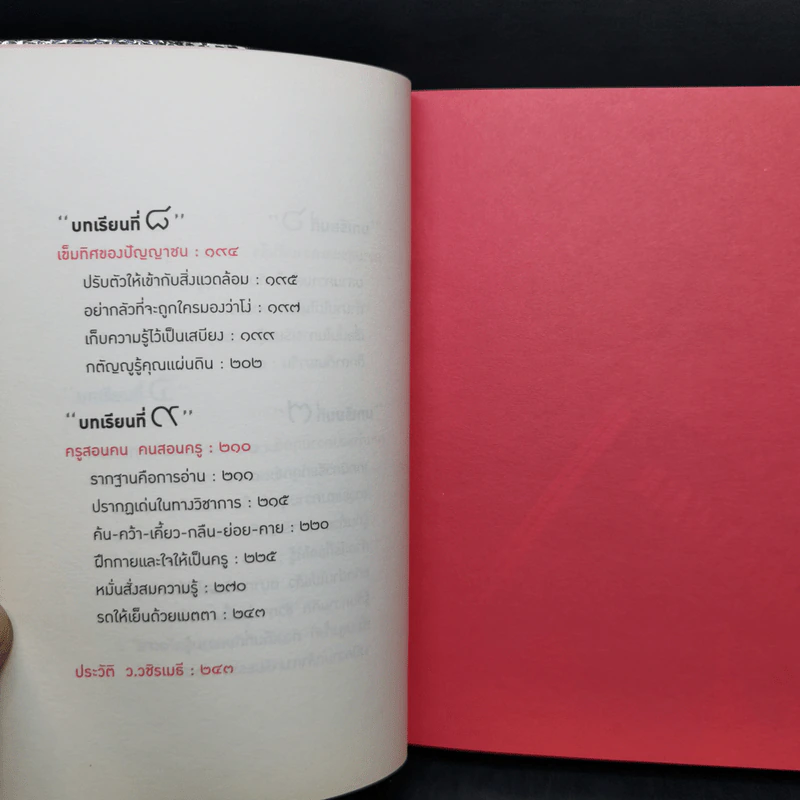 “บทเรียนที่ ๘”
เข็มทิศของปัญญาชน : ๑๙๔
ปรับตัวให้เข้ากับสิ่งแวดล้อม : ๑๙๕
อย่ากลัวที่จะถูกใครมองว่าโง่ : ๑๙๗
เก็บความรู้ไว้เป็นเสบียง : ๑๙๙
กตัญญูรู้คุณแผ่นดิน : ๒๐๒
“บทเรียนที่ ๙”
ครูสอนคน คนสอนครู : ๒๑๐
รากฐานคือการอ่าน : ๒๑๑
ปรากฏเด่นในทางวิชาการ : ๒๑๕
ค้น-คว้า-เคี้ยว-กลืน-ย่อย-คาย : ๒๒๐
ฝึกกายและใจให้เป็นครู : ๒๒๕
หมั่นสั่งสมความรู้ : ๒๗๐
รดให้เย็นด้วยเมตตา : ๒๔๓
ประวัติ ว.วชิรเมธี : ๒๔๓